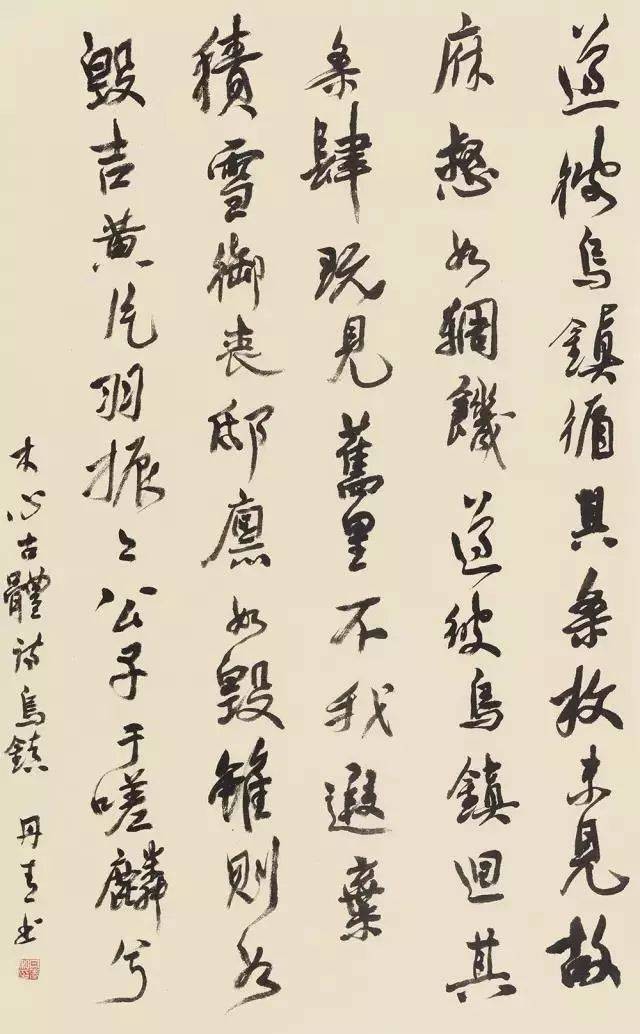 遵彼烏鎮循其条枚未見故
麻惄如輖饑遵彼烏鎮迴其
条肄既見舊里不我遐棄
積雪御喪邸廩如毀雖則如
毀吉黃片羽振〻公子于嗟麟兮
木心古體詩烏鎮 丹青書